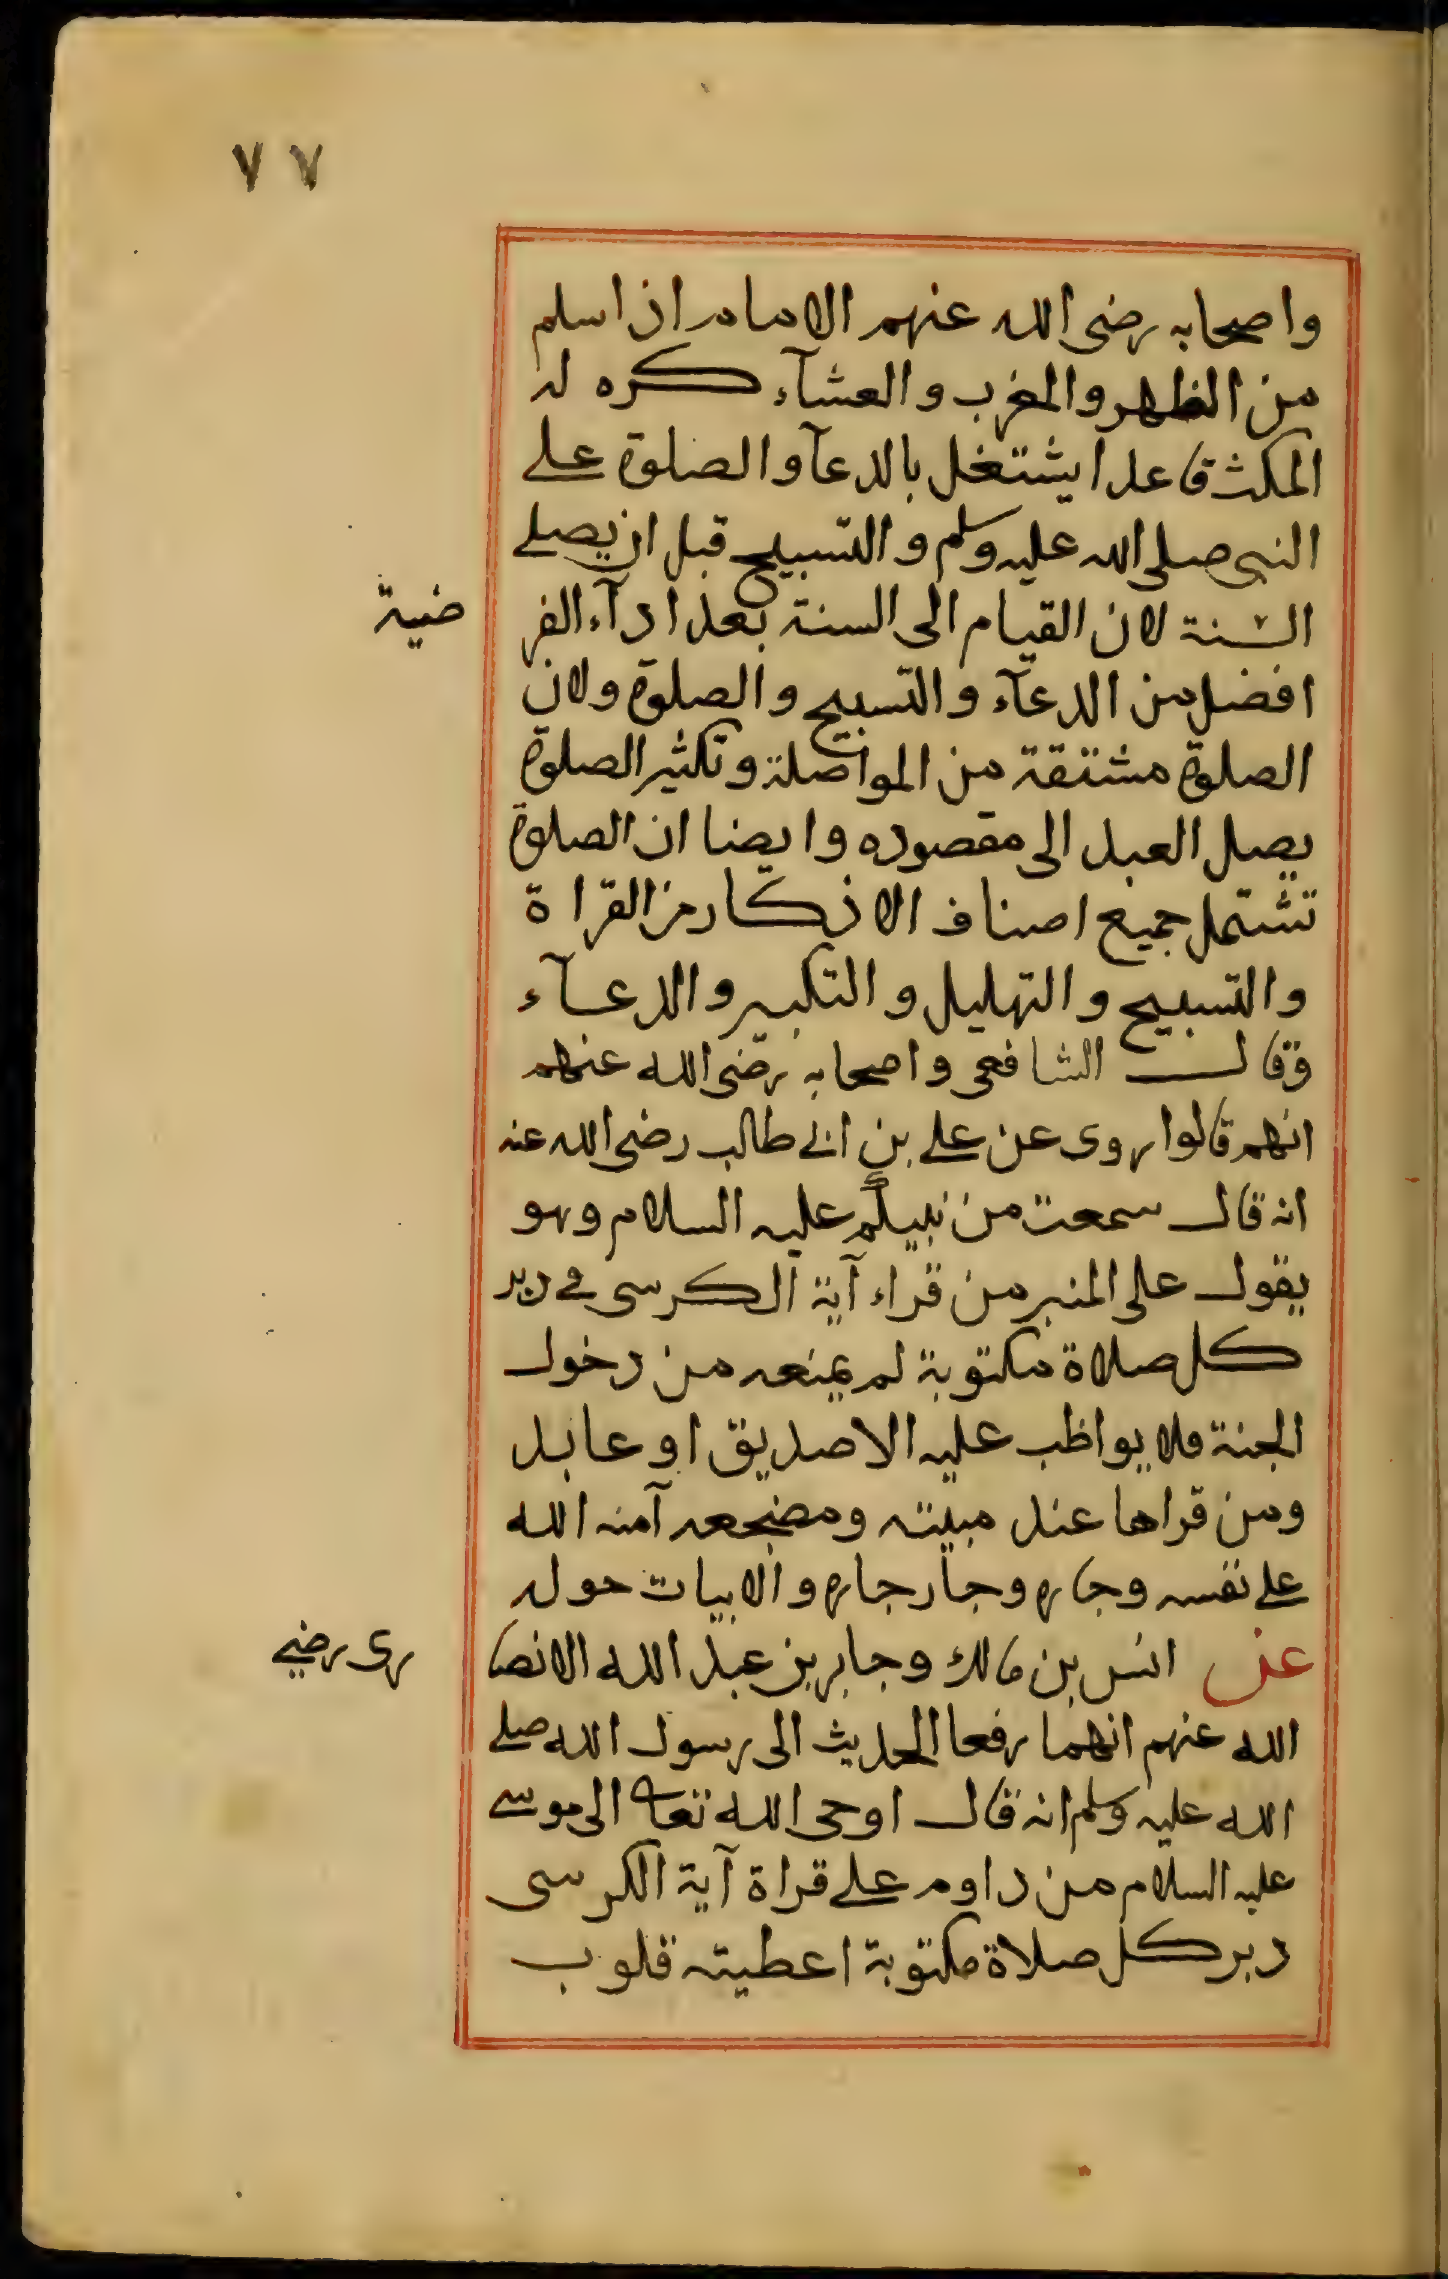 ٧٧
واصحابه رضى الله عنهم الامام اذا سلم
من الظهر والمغرب والعشآء كره له
المكث قاعدا يشتغل بالدعآ والصلوة على
النبى صلى الله عليه وسلم والتسبيح قبل ان يصلى
السنة لان القيام الى السنة بعد ادآء الفر ضية
افضل من الدعآء والتسبيح والصلوة ولان
الصلوة مشتقة من المواصلة وتكثير الصلوة
يصل العبد الى مقصوده وايضا ان الصلوة
تشتمل جميع اصناف الاذكار من القراة
والتسبيح والتهليل والتكبير والدعآء
وقال الشافعى واصحابه رضى الله عنهم
انهم قالوا روى عن على بن ابى طالب رضى الله عنه
انه قال سمعت من نبيكم عليه السلام وهو
يقول على المنبر من قراء آية الكرسى فى دبر
كل صلاة مكتوبة لم يمنعه من دخول
الجنة ولا يواظب عليه الا صديق او عابد
ومن قراها عند مبيته ومضجعه آمنه الله
على نفسه وجاره وجار جاره والابيات حوله
عن انس بن مالك وجابر بن عبد الله الانصا رى رضى
الله عنهم انهما رفعا الحديث الى رسول الله صلى
الله عليه وسلم انه قال اوحى الله تعا الى موسى
عليه السلام من داوم على قراة آية الكرسى
دبر كل صلاة مكتوبة اعطيته قلوب